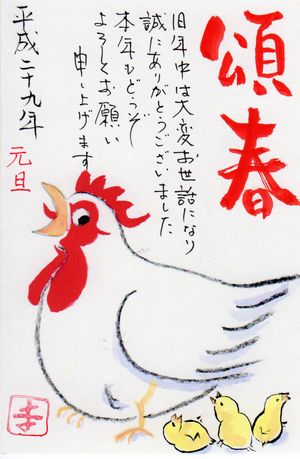 頌春
旧年中は大変お世話になり
誠にありがとうございました
本年もどうぞ
よろしくお願い
申し上げます
平成二十九年
元旦